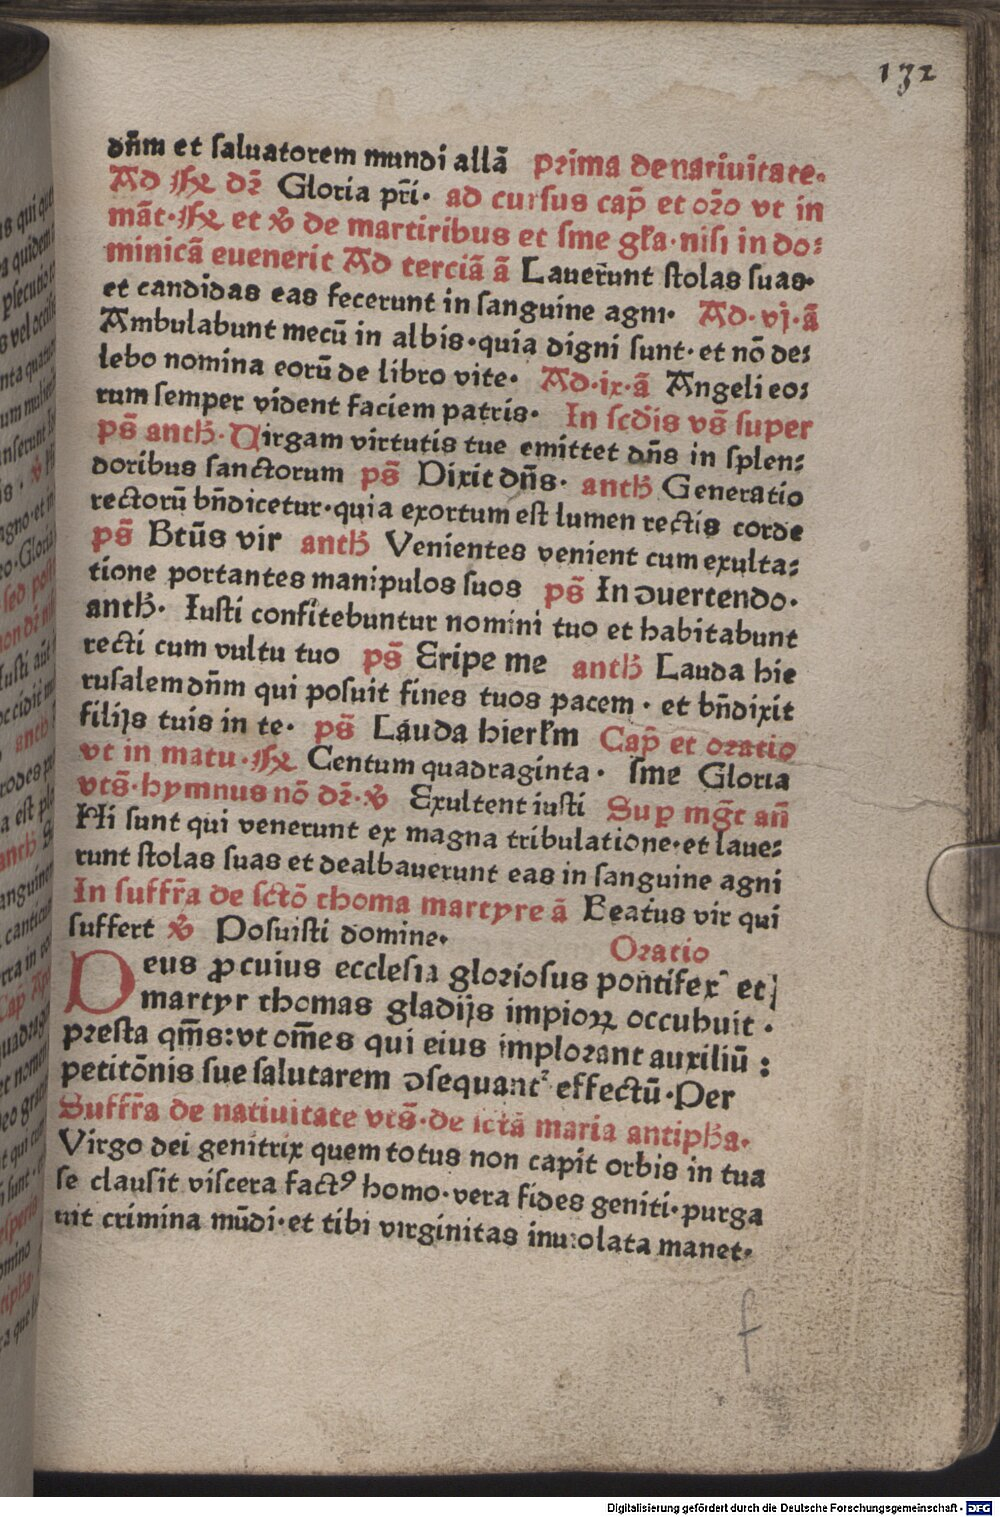 132
dn̄m et ſaluatorem mundi allā prima de natiuitate.
Ad dꝛ̄ Gloria pr̄i· ad curſus cap̄ et oꝛ̄o vt in
māt· et de martiribus et ſme gr̄a·niſi in do:
minicā euenerit Ad terciā ā Lauerūnt ſtolas ſuas·
et candidas eas fecerunt in ſanguine agni· Ad·vj·ā
Ambulabunt mecū in albis·quia digni ſunt·et nō de:
lebo nomina eorū de libro vite· Ad·ix·ā Angeli eo:
rum ſemper vident faciem patris· In ſcd̄is vs̄ ſuper
ps̄ anth̄·Virgam virtutis tue emittet dn̄s in ſplen:
doribus ſanctorum ps̄ Dixit dn̄s· anth̄ Generatio
rectorū bn̄dicetur·quia exortum eſt lumen rectis corde
ps̄ Btūs vir anth̄ Venientes venient cum exulta:
tione portantes manipulos ſuos ps̄ In ɔuertendo·
anth̄· Iuſti confitebuntur nomini tuo et habitabunt
recti cum vultu tuo ps̄ Eripe me anth̄ Lauda hie
ruſalem dn̄m qui poſuit fines tuos pacem· et bn̄dixit
filijs tuis in te· ps̄ Lauda hierl̄m Cap̄ et oratio
vt in matu· Centum quadraginta· ſme Gloria
vts̄·hymnus nō dꝛ̄· Exultent iuſti Sup mḡt an̄
Hi ſunt qui venerunt ex magna tribulatione·et laue:
runt ſtolas ſuas et dealbauerunt eas in ſanguine agni
In ſuffr̄a de ſctō thoma martyre ā Beatus vir qui
ſuffert Poſuiſti domine·
Oratio
Deus ꝓ cuius eccleſia glorioſus pontifex et
martyr thomas gladijs impioꝝ occubuit·
preſta qm̄s:vt om̄es qui eius implorant auxiliū:
petitōnis ſue ſalutarem ɔſequant᷑ effectū·Per
Suffr̄a de natiuitate vts̄·de ſctā maria antiph̄a·
Virgo dei genitrix quem totus non capit orbis in tua
ſe clauſit viſcera factꝰ homo·vera fides geniti·purga
uit crimina mūdi·et tibi virginitas inuiolata manet·
f
Digitalisierung gefördert durch die Deutsche Forschungsgemeinschaft - DFG